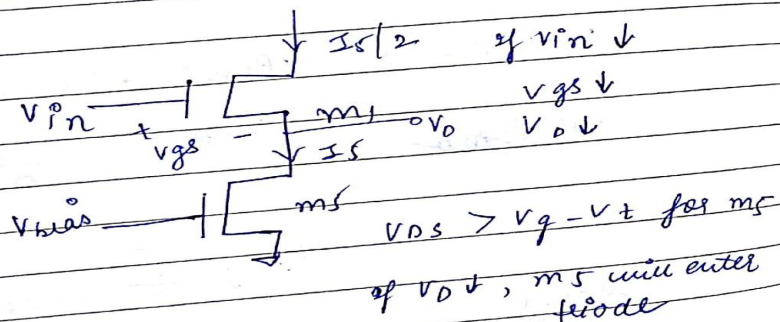 I5/2 if vin ↓
Vin + vgs - m1 vgs ↓
VD VD ↓
I5
Vbias m5
VDS > Vg - Vt for m5
if VD ↓, m5 will enter
triode